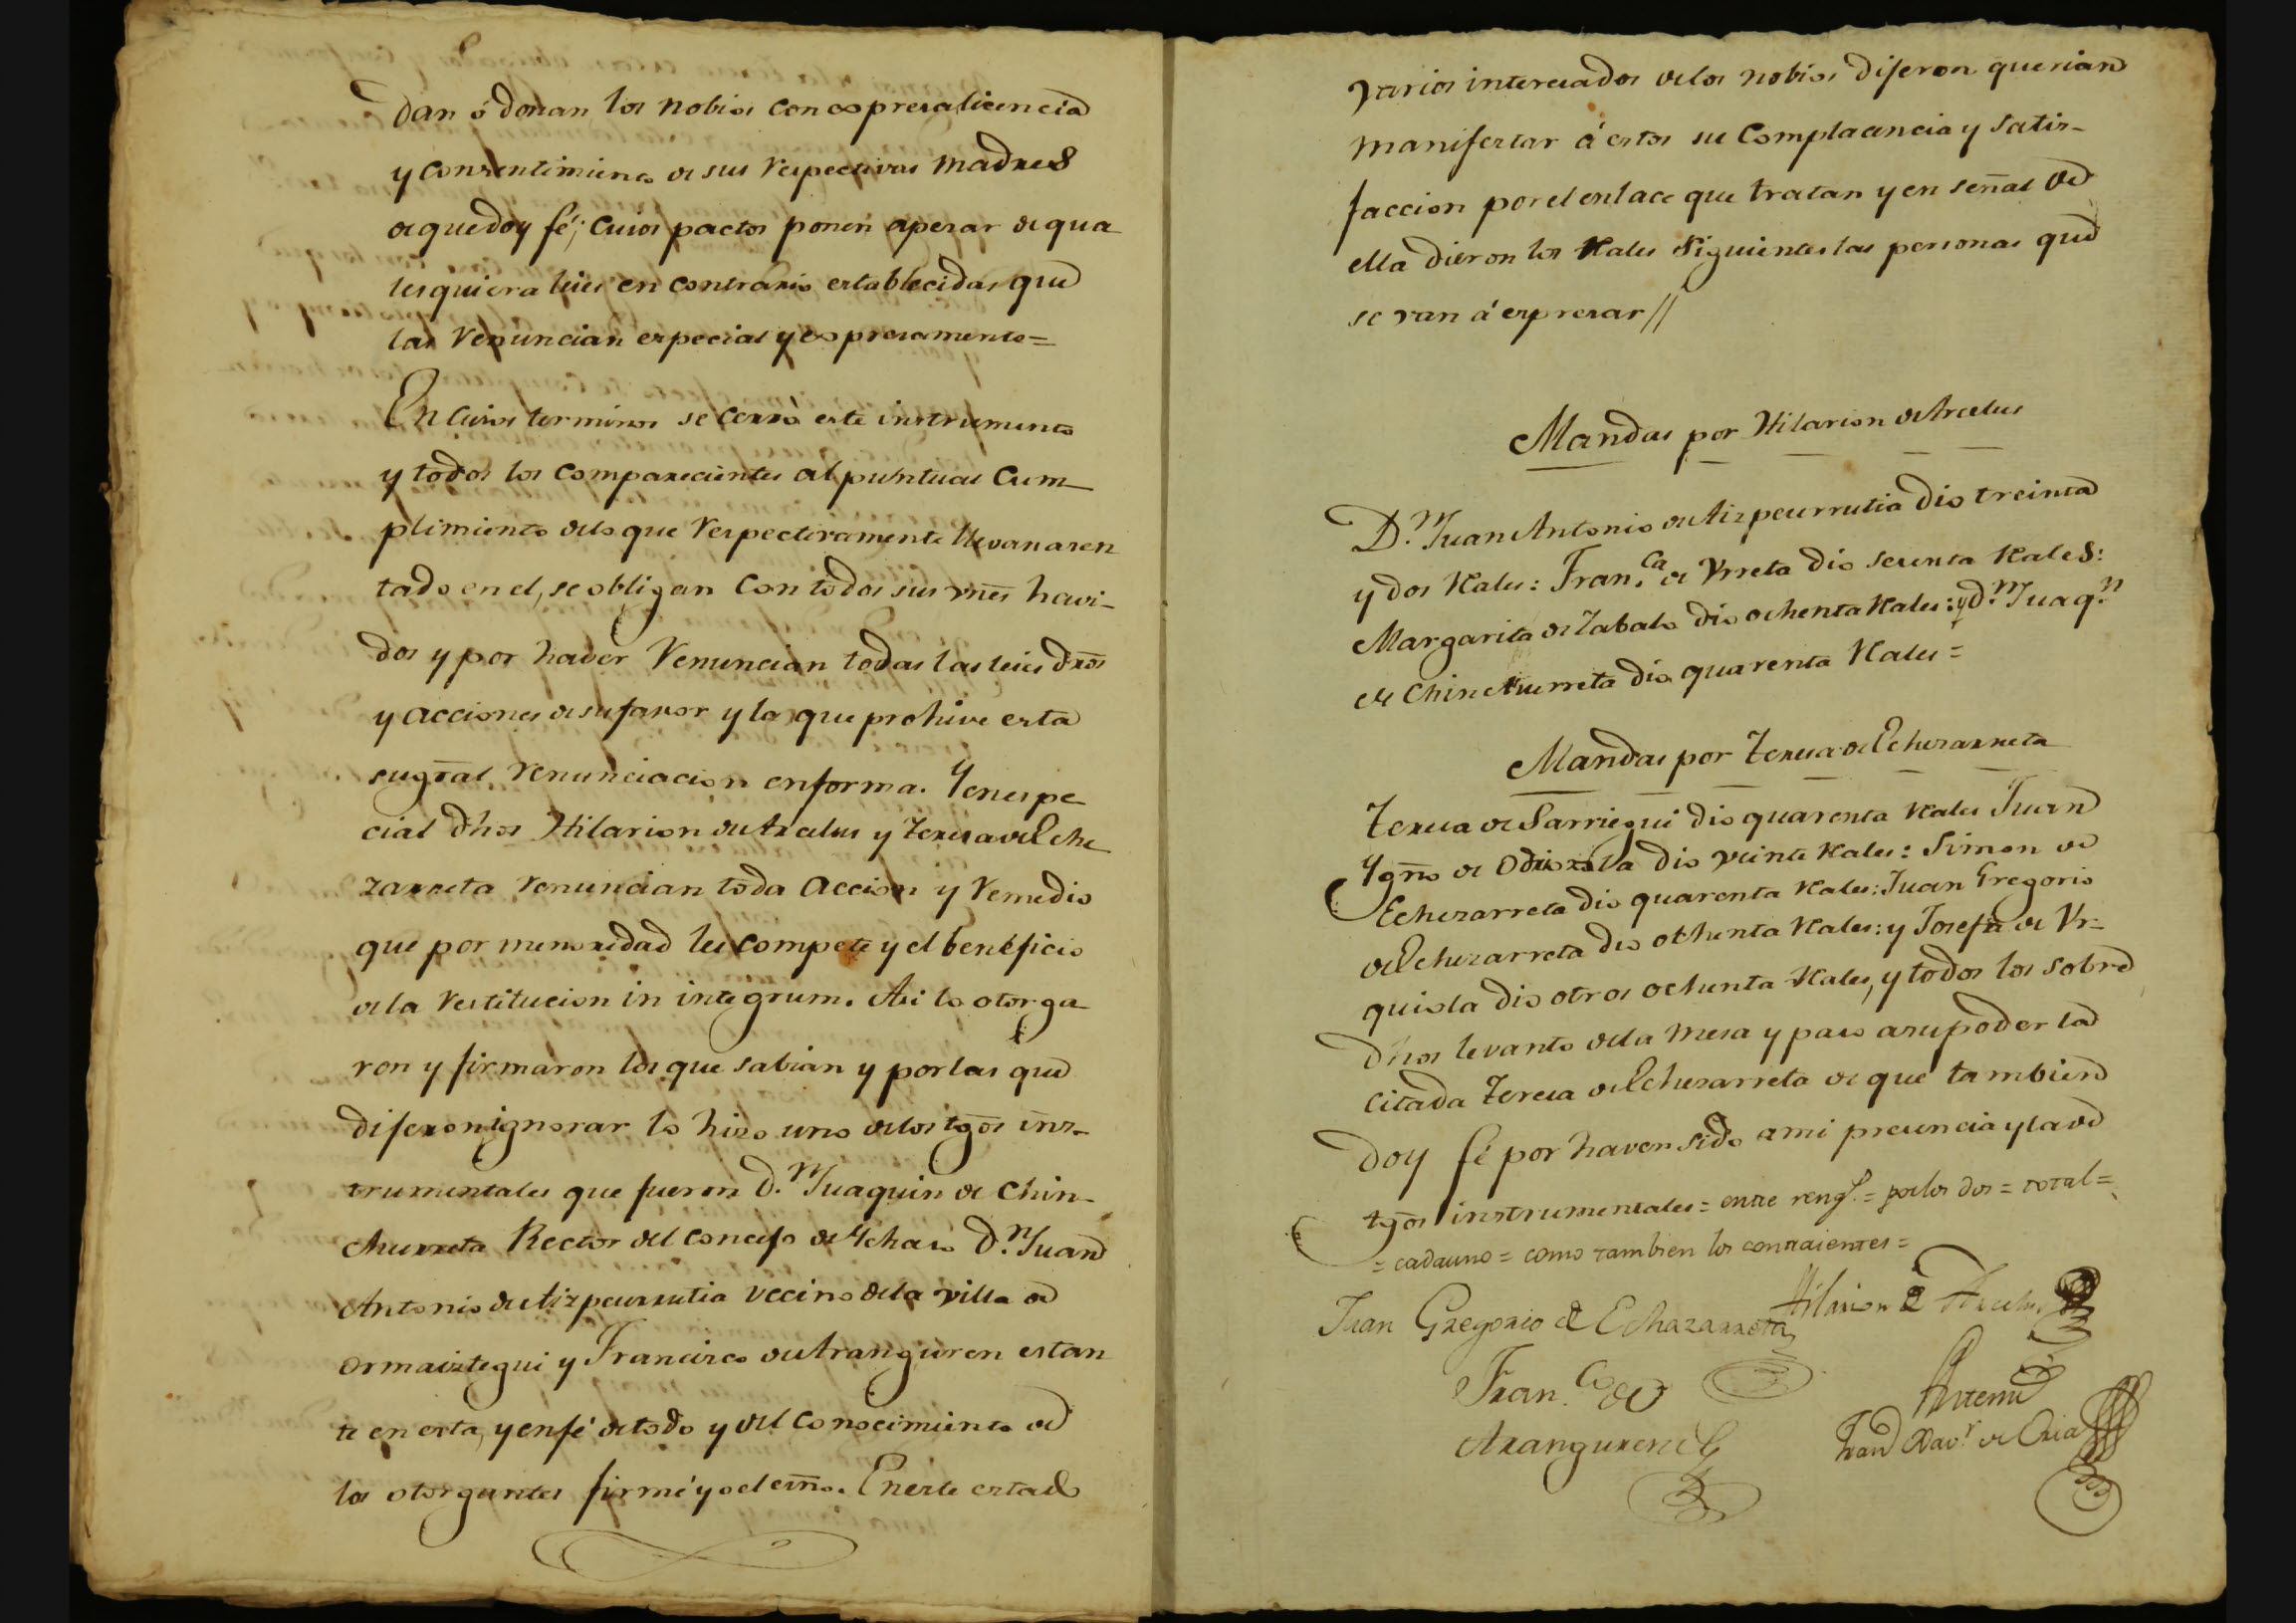 dan ó donan los nobios con expresa licencia
y consentimiento de sus respectivas madres
de que doy fé; cuios pactos ponen apesar de qua
lesquiera leies en contrario establecidas que
las renuncian especial y expresamente=
En cuios terminos se cerró este instrumento
y todos los comparecientes al puntual cum-
plimiento delo que respectivamente llevan asen
tado en el, se obligan con todos sus vnēs havi-
dos y por haver renuncian todas las leies drōs
y acciones de su favor y la que prohive esta
su grāl renunciacion enforma. Y en espe
cial dhos Hilarion de Arcelus y Teresa de Eche
zarreta renuncian toda accion y remedio
que por menoridad les compete y el beneficio
dela restitucion in integrum. Asi lo otorga
ron y firmaron los que sabian y por las que
dijeron ignorar lo hizo uno delos tgōs ins-
trumentales que fueron D.n Juaquin de Chin-
churreta Rector del concejo de Ychaso D.n Juan
Antonio de Aizpeurrutia vecino dela villa de
Ormaiztegui y Francisco de Aranguren estan
te en esta, y en fé de todo y del conocimiento de
los otorgantes firmé yo el esnō. En este estado
varios interesados delos nobios dijeron querian
manifestar á estos su complacencia y satis-
faccion por el enlace que tratan y en señal de
ella dieron los Rales siguientes las personas que
se van á expresar//
Mandas por Hilarion de Arcelus
D.n Juan Antonio de Aizpeurrutia dio treinta
y dos Rales: Fran.ca de Vrreta dio sesenta Rales:
Margarita de Zabalo dio ochenta Rales: y d.n Juaq.n
de Chinchurreta dio quarenta Rales=
Mandas por Teresa de Echezarreta
Teresa de Sarriegui dio quarenta Rales Juan
Ygnō de Odriozola dio veinte Rales: Simon de
Echezarreta dio quarenta Rales: Juan Gregorio
de Echezarreta dio ochenta Rales: y Josefa de Vr-
quiola dio otros ochenta Rales, y todos los sobre
dhos levanto dela mesa y paso a su poder la
citada Teresa de Echezarreta de que tambien
doy fé por haver sido a mi presencia y la de
tgōs instrumentales= entre rengs.= por los dos= total=
= cada uno= como tambien los contraientes=
Juan Gregorio de Echazarreta Hilarion de Arcelus
Fran.co de
Aranguren
Antemi
Fran.co Xav.r de Oria